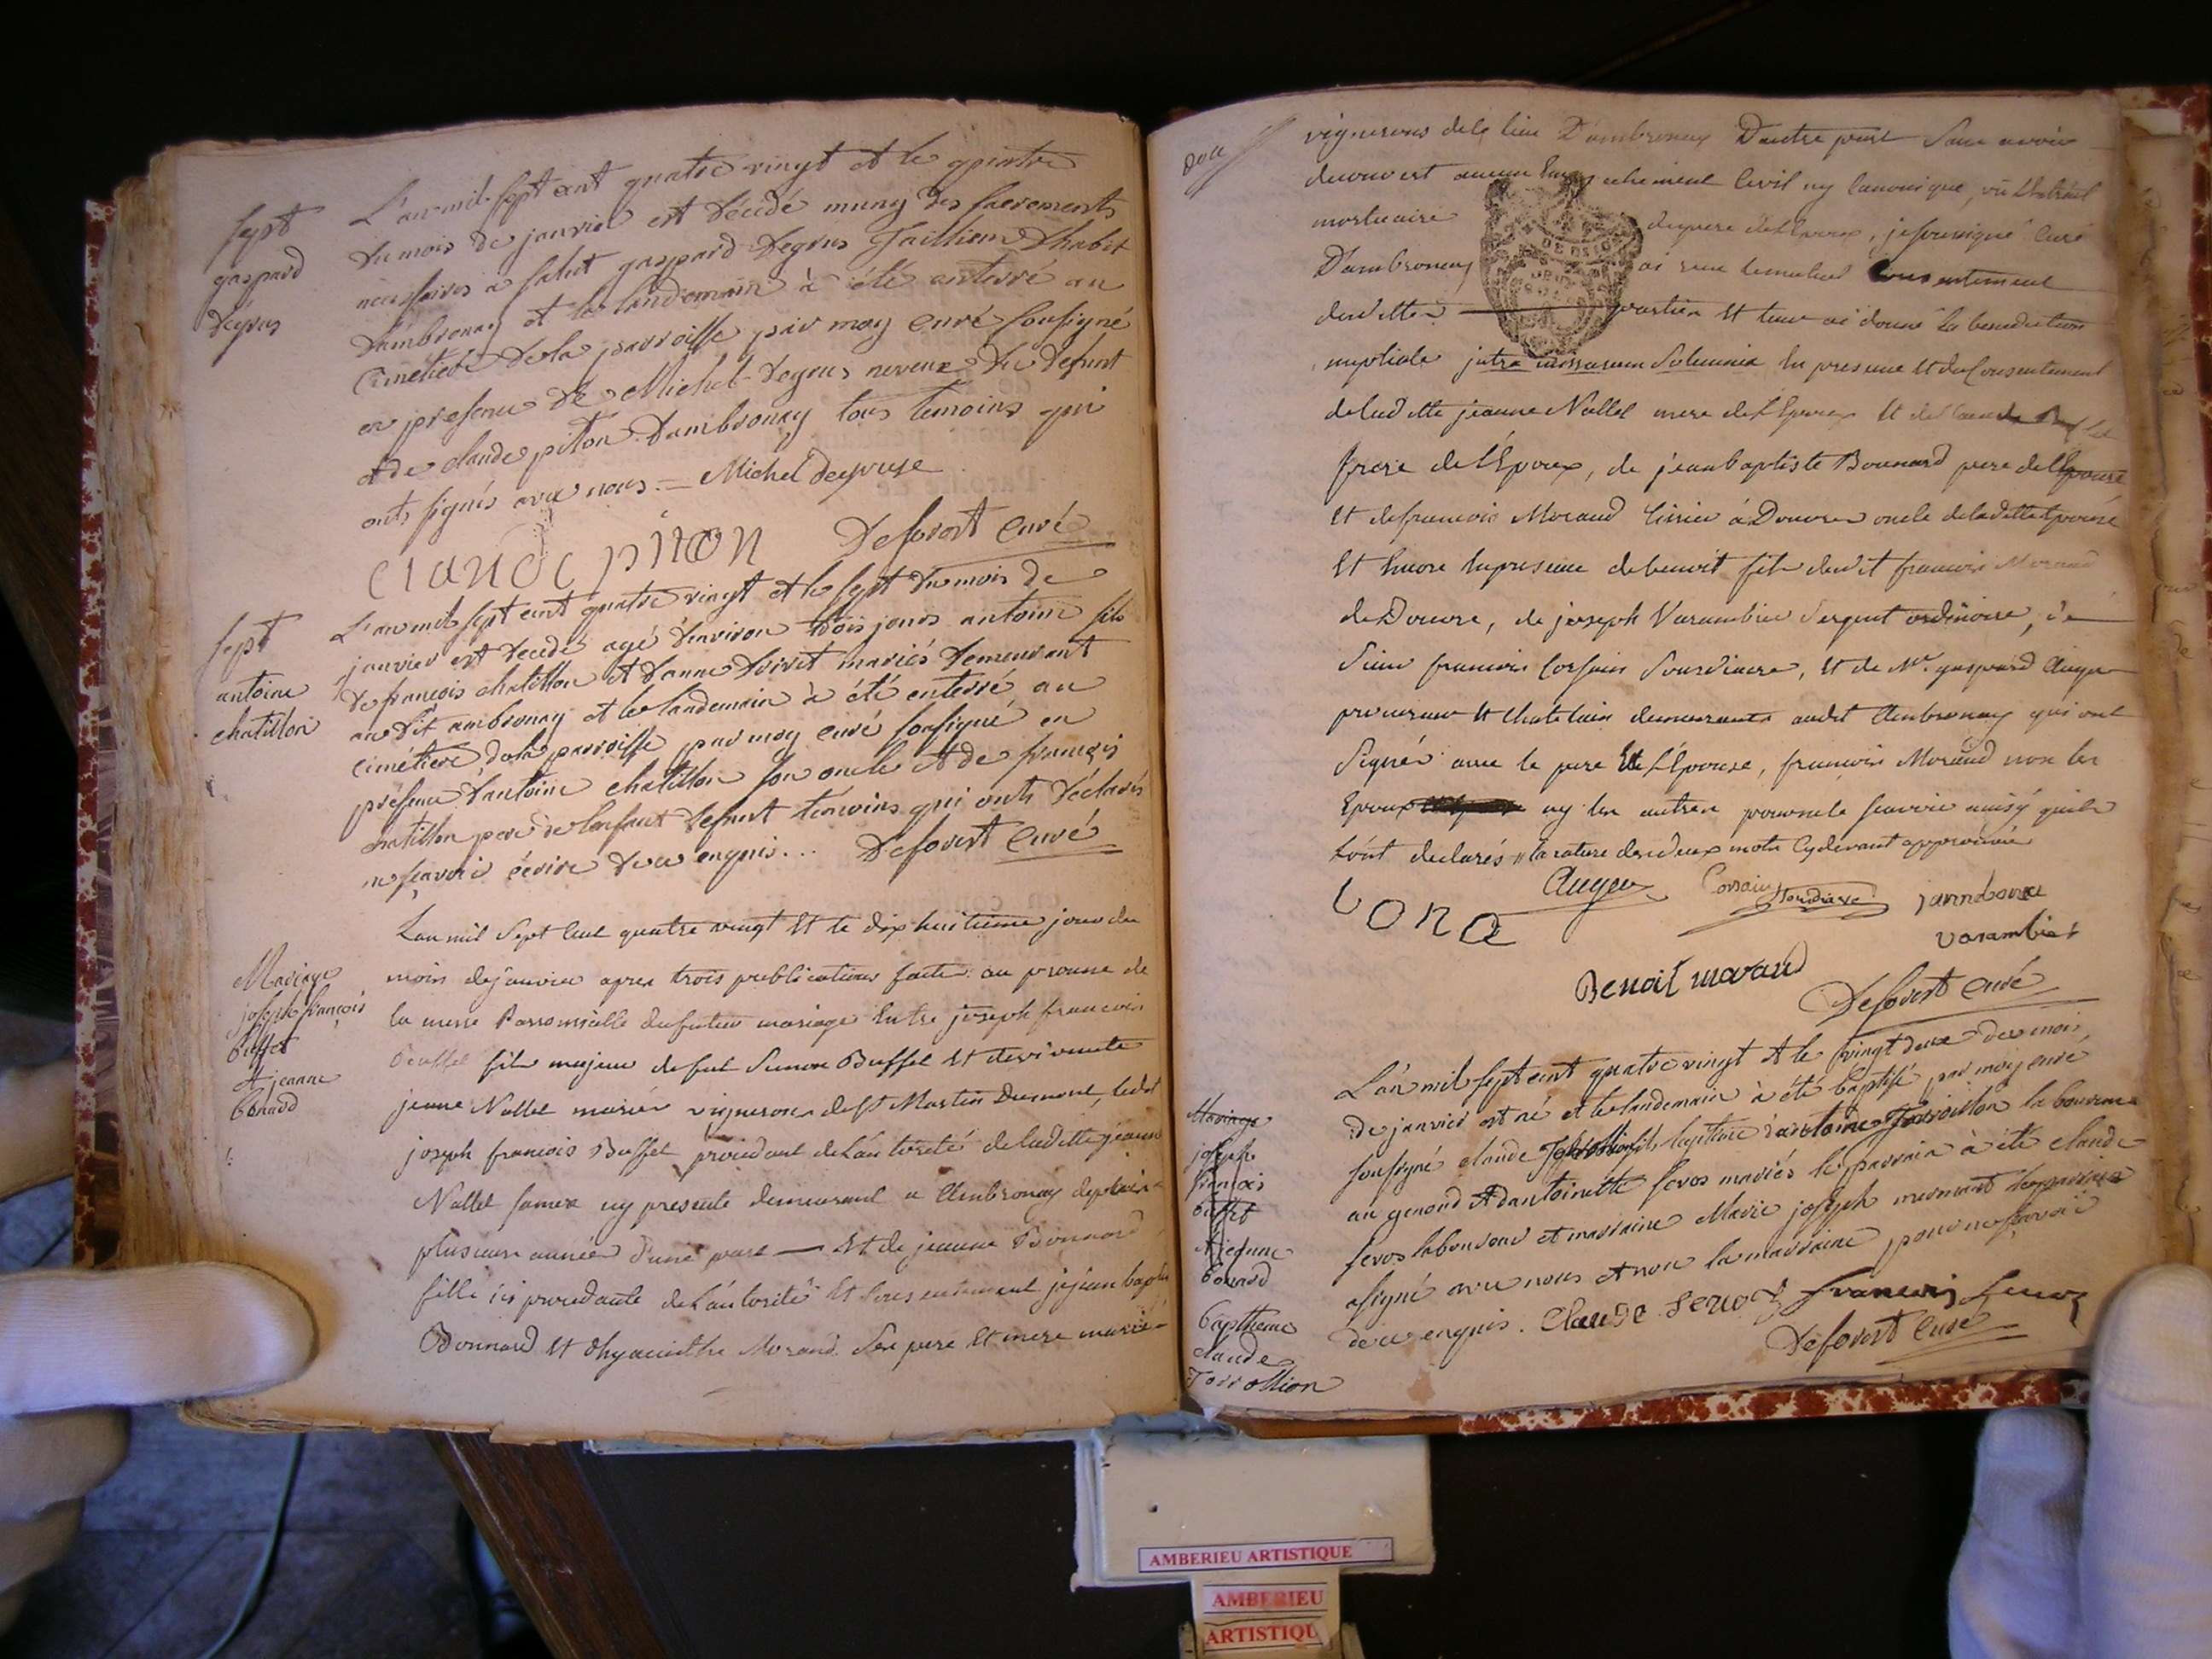 Sept
gaspard
degrus
L'an mil sept cent quatre vingt et le quatre
du mois de janvier est décédé muny des sacrements
nécessaires a salut gaspard degrus Taillieur d'habit
d'ambronay et le landemain à été enterré au
cimétiere de la parroisse par moy curé sousigné
en presence de Michel degrus neveux du defunt
et de claude piton d'ambronay tous temoins qui
onts signés avec nous. — Michel degruse
claude piton Deforest curé
Sept
antoine
chatillon
L'an mil sept cent quatre vingt et le sept du mois de
janvier est décédé agé d'environ trois jours antoine fils
de françois chatillon et d'anne mariés demeurant
au dit ambronay et le landemain à été enterré au
cimétiere de la parroisse par moy curé sousigné en
présence d'antoine chatillon son oncle et de françois
chatillon pere de l'enfant defunt témoins qui onts déclarés
ne sçavoir écrire de ce enquis... Deforest curé
Mariage
joseph françois
buffet
et jeanne
bonard
L'an mil sept cent quatre vingt et le dix huitieme jour du
mois de janvier apres trois publications faites au prosne de
la messe Parroissialle du futur mariage entre joseph francois
Buffet fils majeur de fut Simon Buffet et de vivante
jeanne Nallet mariés vignerons de st Martin Dumont, ledit
joseph francois Buffet procedant de l'autorité de ladite jeanne
Nallet sa mere icy presente demeurant a Ambronay depuis
plusieurs années d'une part — et de jeanne Bonnard
fille procedante de l'autorité et consentement de jean baptiste
Bonnard et d'hyacinthe Morand ses pere et mere mariés
vignerons de ce lieu D'ambronay D'autre part sans avoir
decouvert aucun empechement civil ny canonique, vû l'extrait
mortuaire du pere de l'epoux, je soussigné curé
D'ambronay ai reçu le mutuel consentement
desdittes parties et leur ai donné la benediction
nuptiale intra missarum solemnia en presence et du consentement
de laditte jeanne Nallet mere de l'Epoux et de
frere de l'Epoux, de jean baptiste Bonnard pere de l'Epouse
et de francois Morand à Douvres oncle de laditte Epouse
et encore en presence de benoit fils dudit francois Morand
de Douvre, de joseph Varambier Sergent ordinaire, de
Sieur francois Corsain Sousdiacre, et de Mr. gaspard Auger
procureur et chatelain demeurants audit Ambronay qui ont
signés avec le pere de l'Epouse, francois Morand non les
Epoux ny les autres pour ne le scavoir ainsy qu'ils
l'ont declarés // la rature des deux mots cy devant approuvée
bona Auger Corsain Sousdiacre
varambier
Benoit morand
Deforest curé
Mariage
joseph
françois
buffet
et jeanne
bonard
Baptheme
claude
Jorrollion
L'an mil sept cent quatre vingt et le vingt deux du mois
de janvier est né et le landemain à été baptisé par moy curé
sousigné claude fils legitime d'antoine laboureur
au genoud et d'antoinette servos mariés le parrain à été claude
servos laboureur et marraine Marie joseph le parrain
a signé avec nous et non la marraine pour ne sçavoir
de ce enquis. Claude servoz francois servoz
Deforest curé
AMBERIEU ARTISTIQUE
AMBERIEU
ARTISTIQU